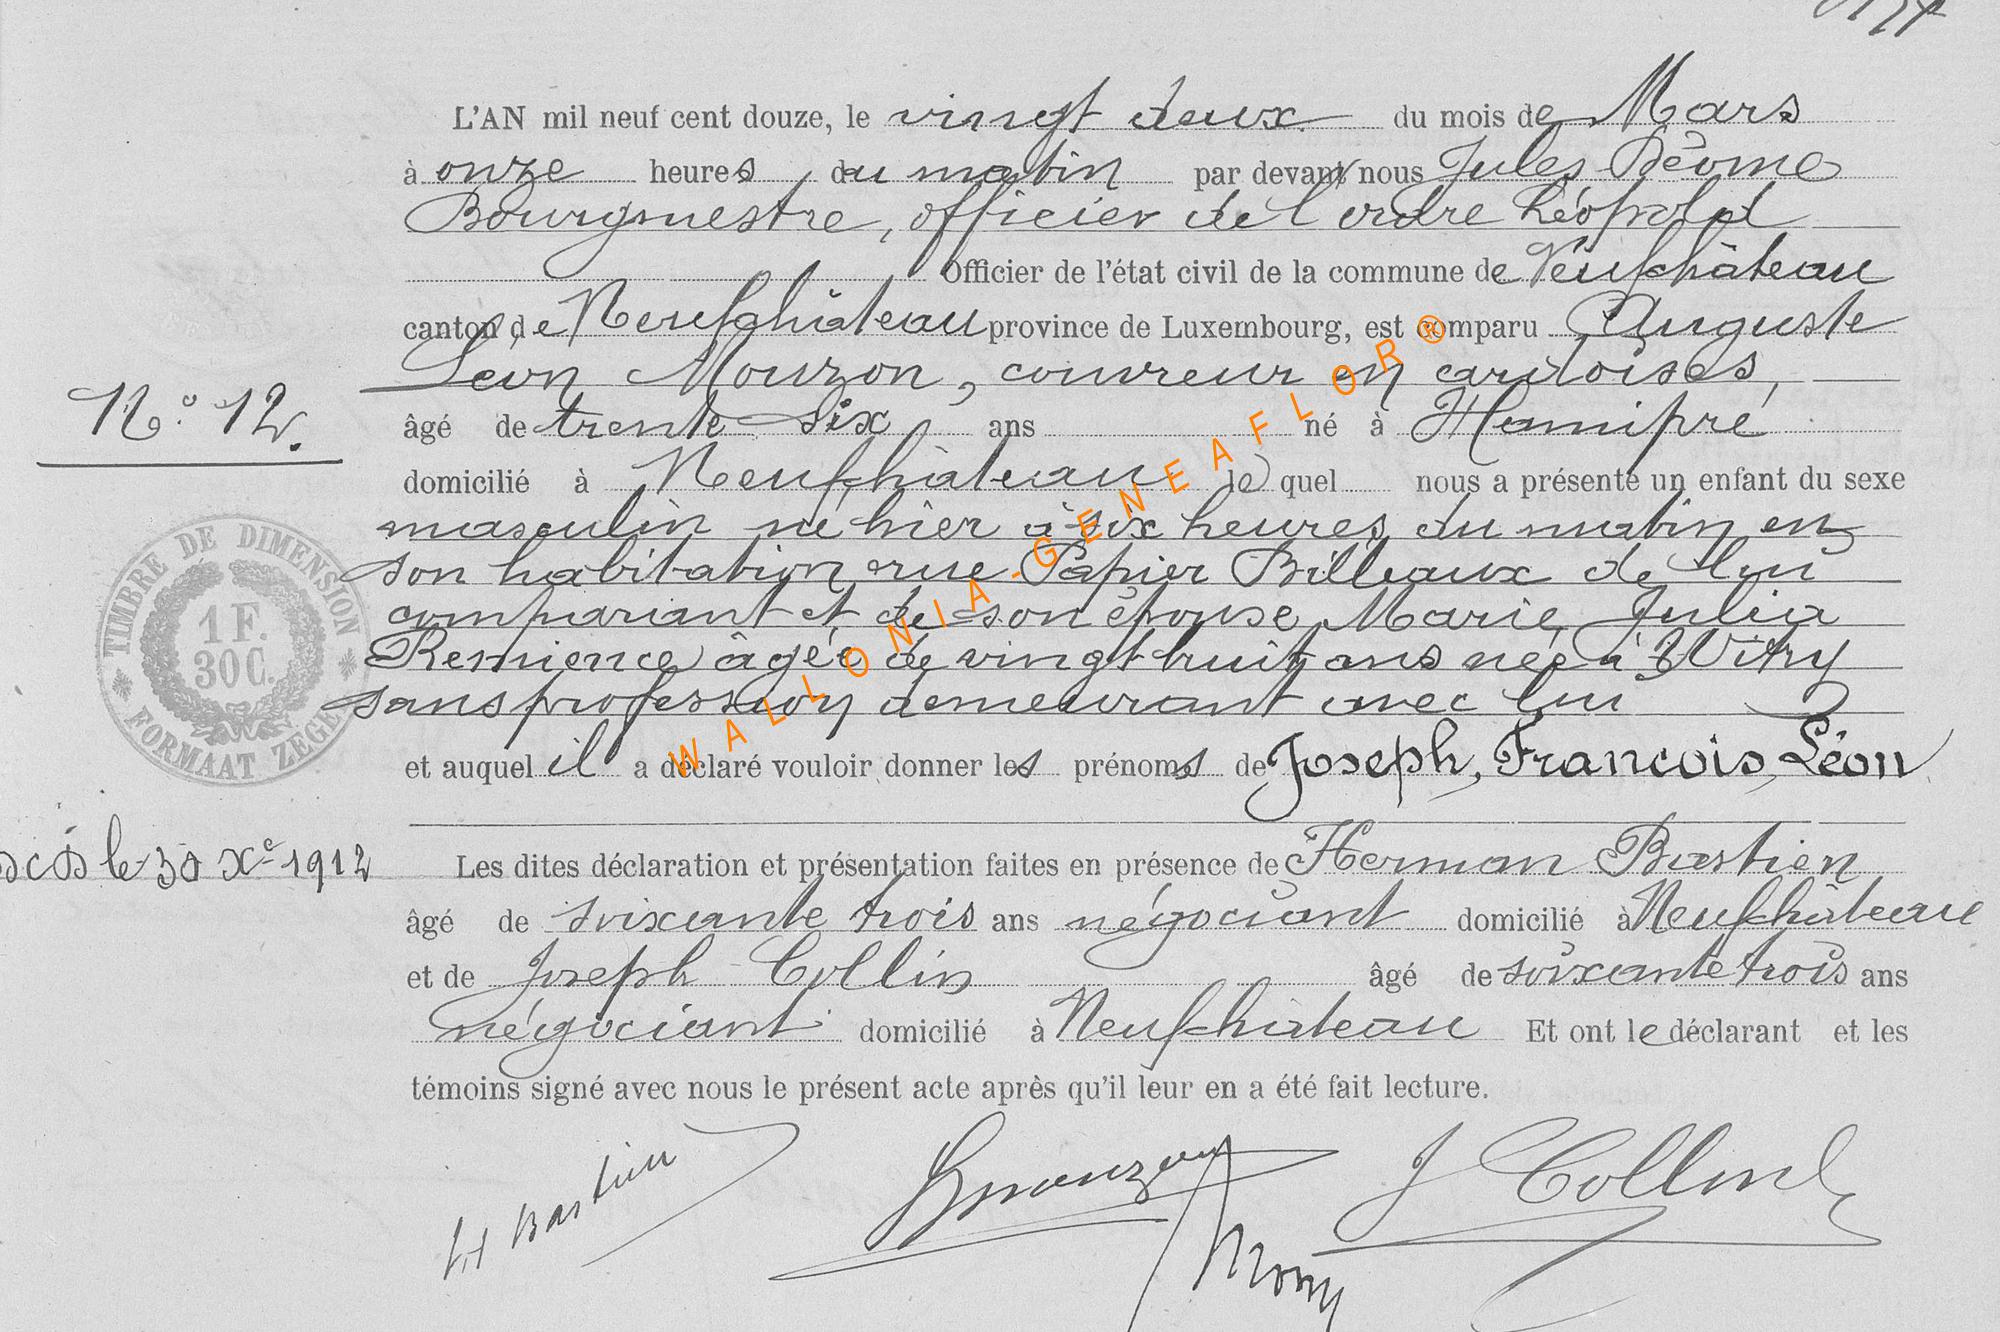 L'AN mil neuf cent douze, le vingt deux du mois de Mars
à onze heures du matin par devant nous Jules
Bourgmestre, officier de l'ordre Léopold
Officier de l'état civil de la commune de Neufchâteau
canton de Neufchâteau province de Luxembourg, est comparu Auguste
Léon Mouzon, couvreur en ardoises,
N° 12.
âgé de trente six ans né à Hamipré
domicilié à Neufchâteau lequel nous a présenté un enfant du sexe
masculin né hier à six heures du matin en
son habitation rue Papier Billeaux de lui
comparant et de son épouse Marie Julia
Remience âgée de vingt huit ans née à Witry
sans profession demeurant avec lui
TIMBRE DE DIMENSION
1 F.
30 C.
FORMAAT ZEGEL
et auquel il a déclaré vouloir donner les prénoms de Joseph, François, Léon
le 30 Xe 1912
Les dites déclaration et présentation faites en présence de Herman Bastien
âgé de soixante trois ans négociant domicilié à Neufchâteau
et de Joseph Collin âgé de soixante trois ans
négociant domicilié à Neufchâteau Et ont le déclarant et les
témoins signé avec nous le présent acte après qu'il leur en a été fait lecture.
H Bastien Lmouzon J Collin
WALLONIA-GENEAFLOR®